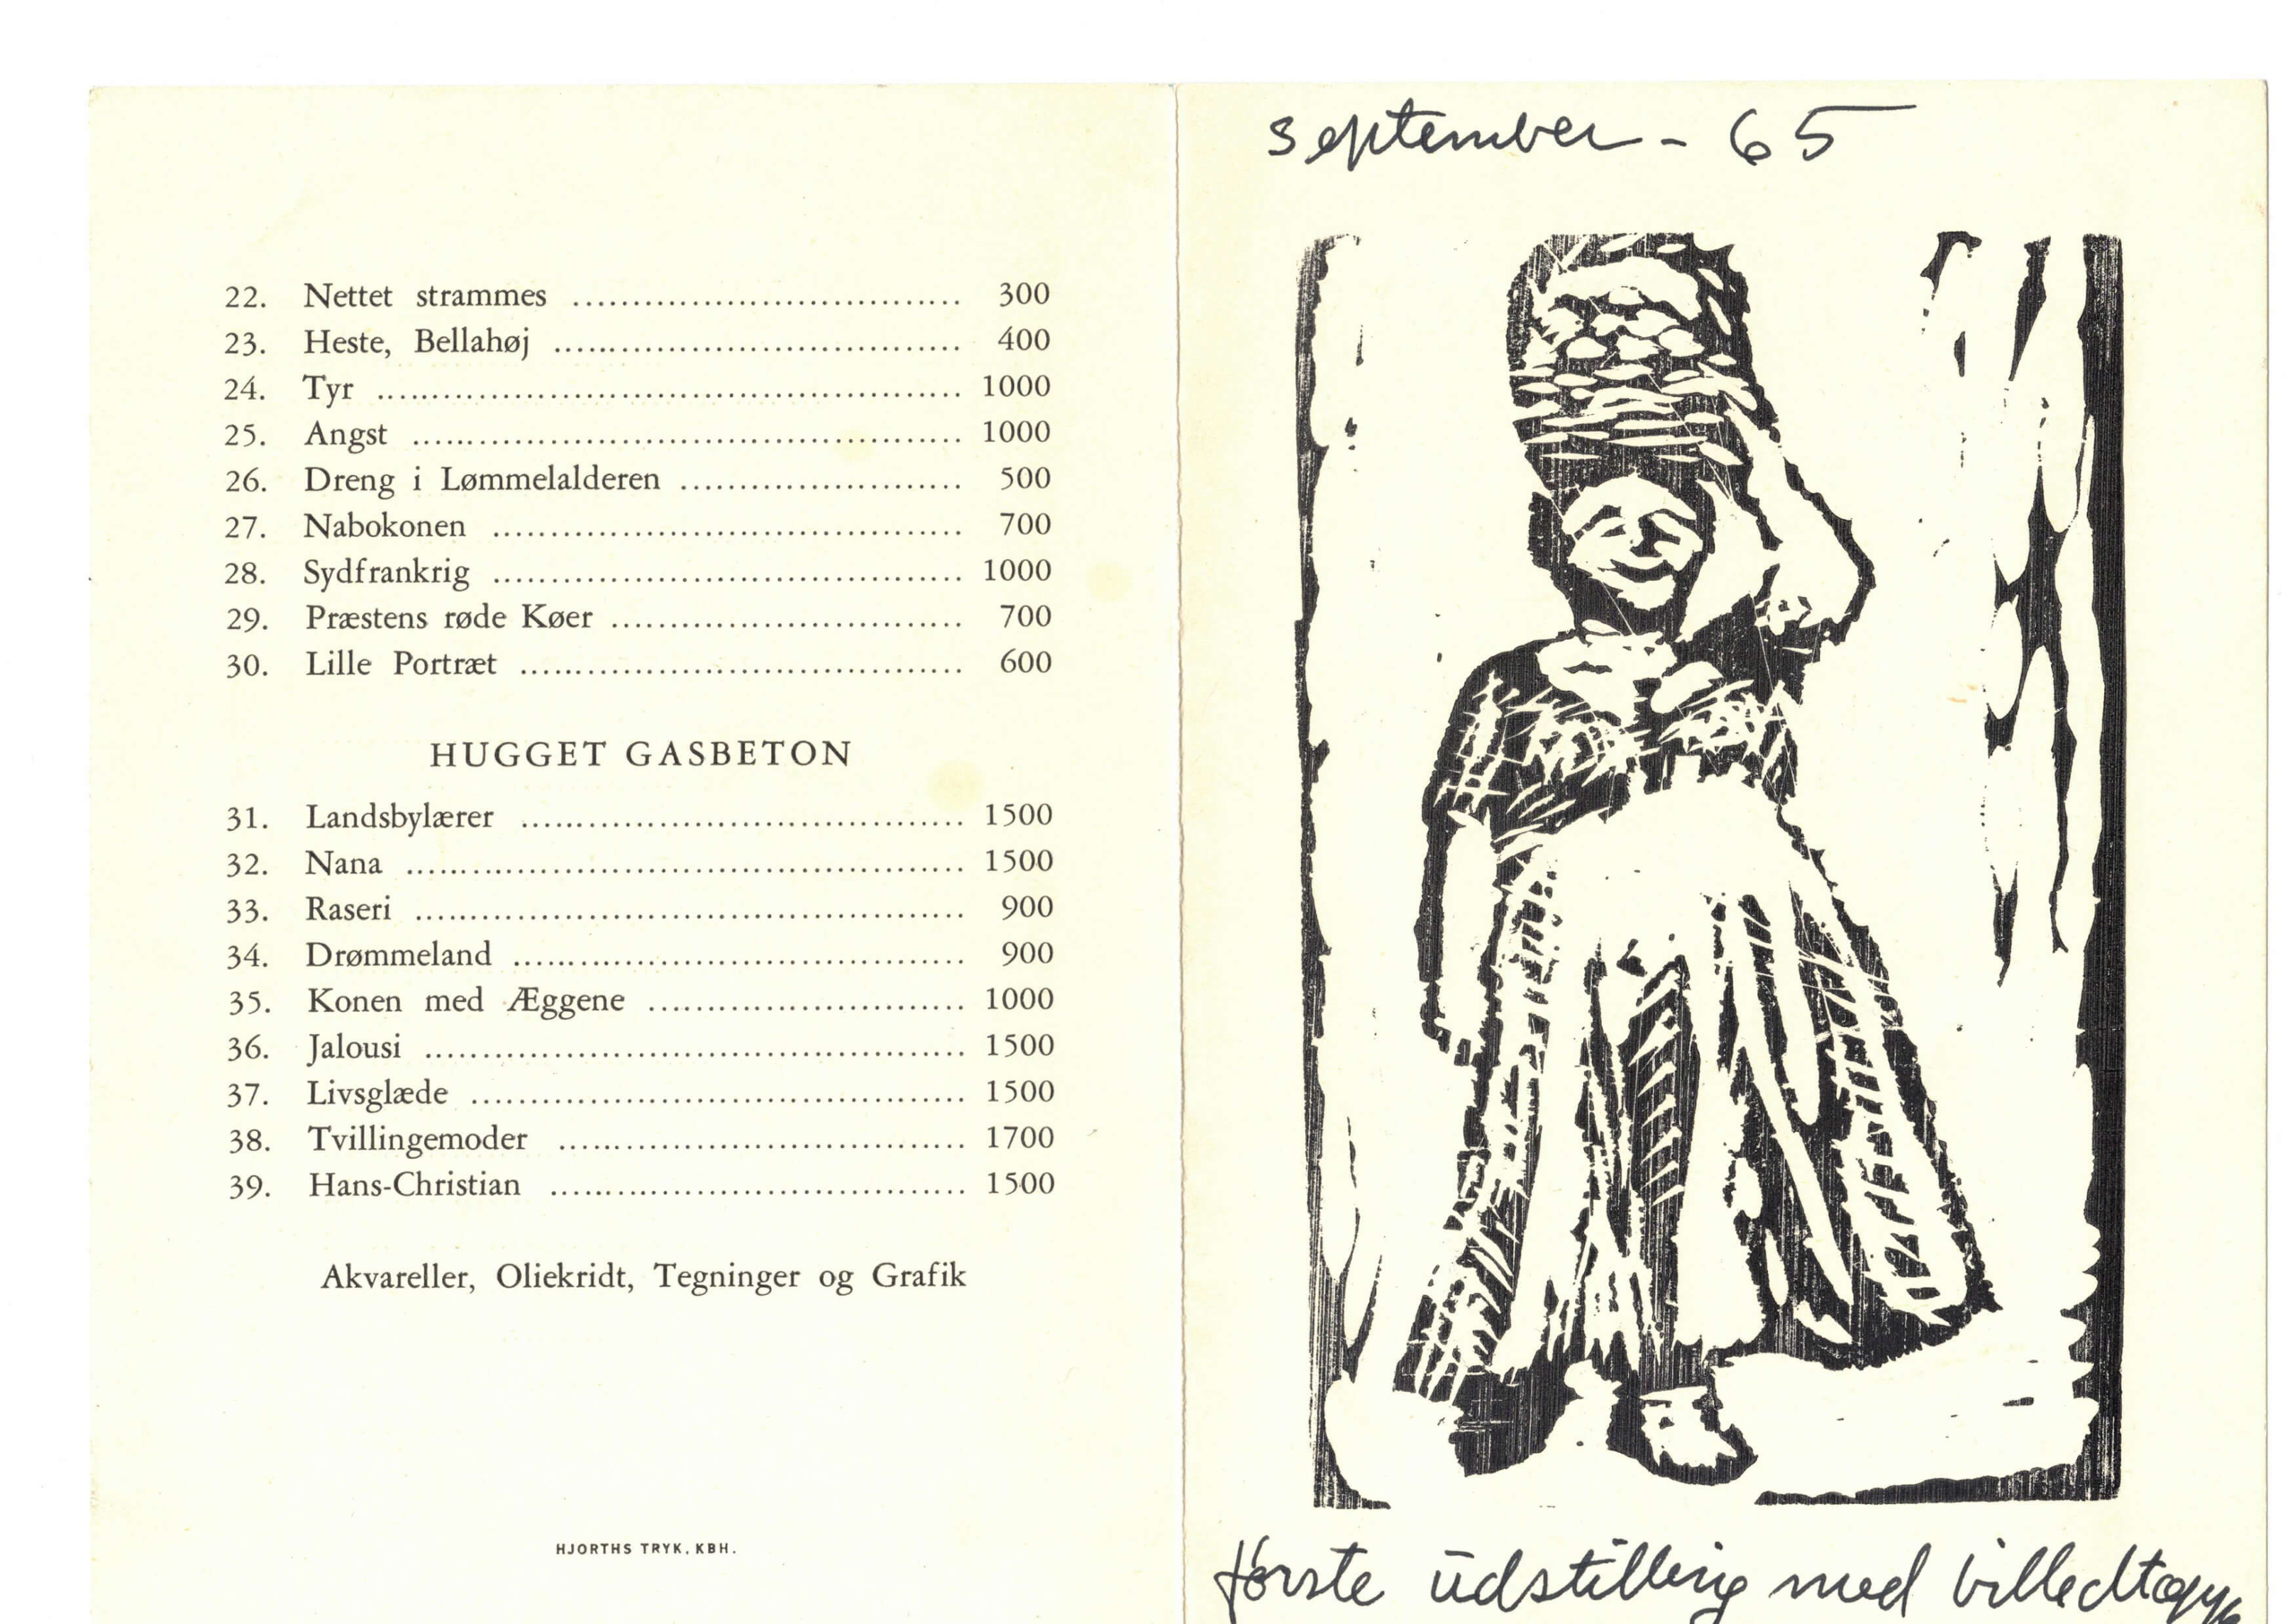 22. Nettet strammes ................................. 300
23. Heste, Bellahøj ................................... 400
24. Tyr ................................................. 1000
25. Angst .............................................. 1000
26. Dreng i Lømmelalderen ........................ 500
27. Nabokonen ........................................ 700
28. Sydfrankrig ........................................ 1000
29. Præstens røde Køer .............................. 700
30. Lille Portræt ...................................... 600
HUGGET GASBETON
31. Landsbylærer ...................................... 1500
32. Nana ................................................ 1500
33. Raseri ............................................... 900
34. Drømmeland ....................................... 900
35. Konen med Æggene ........................... 1000
36. Jalousi .............................................. 1500
37. Livsglæde .......................................... 1500
38. Tvillingemoder ................................... 1700
39. Hans-Christian ................................... 1500
Akvareller, Oliekridt, Tegninger og Grafik
HJORTHS TRYK, KBH.
september - 65
første udstilling med